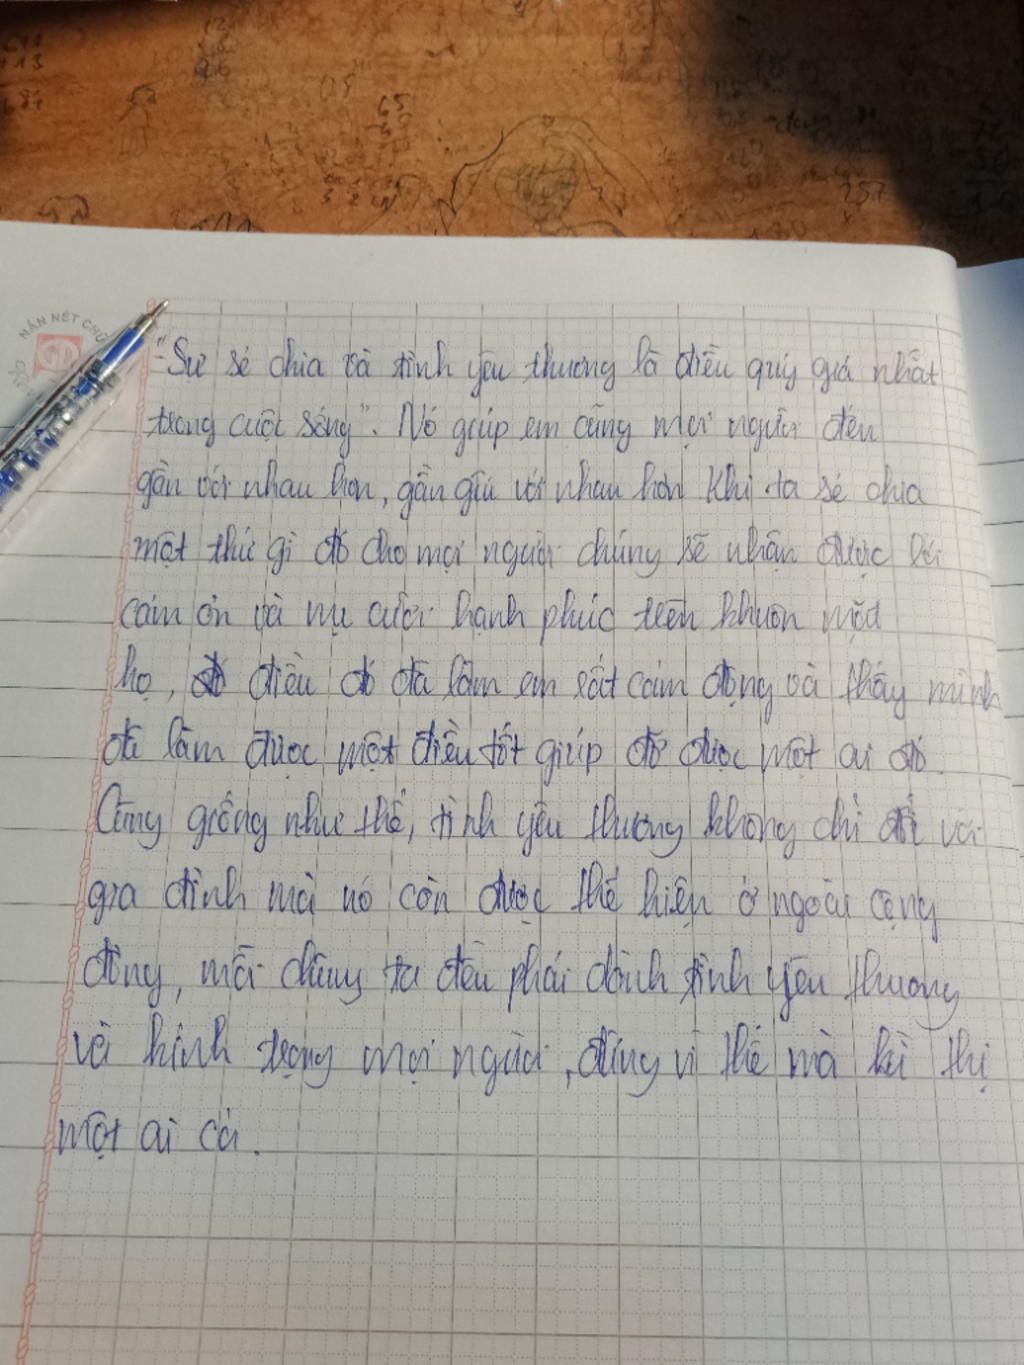 NẮN NÉT CHỮ
"Sự sẻ chia và tình yêu thương là điều quý giá nhất
trong cuộc sống". Nó giúp em cùng mọi người đến
gần với nhau hơn, gần gũi với nhau hơn Khi ta sẻ chia
một thứ gì đó cho mọi người chúng sẽ nhận được lời
cảm ơn và nụ cười hạnh phúc trên khuôn mặt
họ, điều đó đã làm em rất cảm động và thấy mình
đã làm được một điều tốt giúp đỡ được một ai đó.
Cũng giống như thế, tình yêu thương không chỉ đối với
gia đình mà nó còn được thể hiện ở ngoài cộng
đồng, mỗi chúng ta đều phải dành tình yêu thương
và kính trọng mọi người, đừng vì thế mà kì thị
một ai cả.